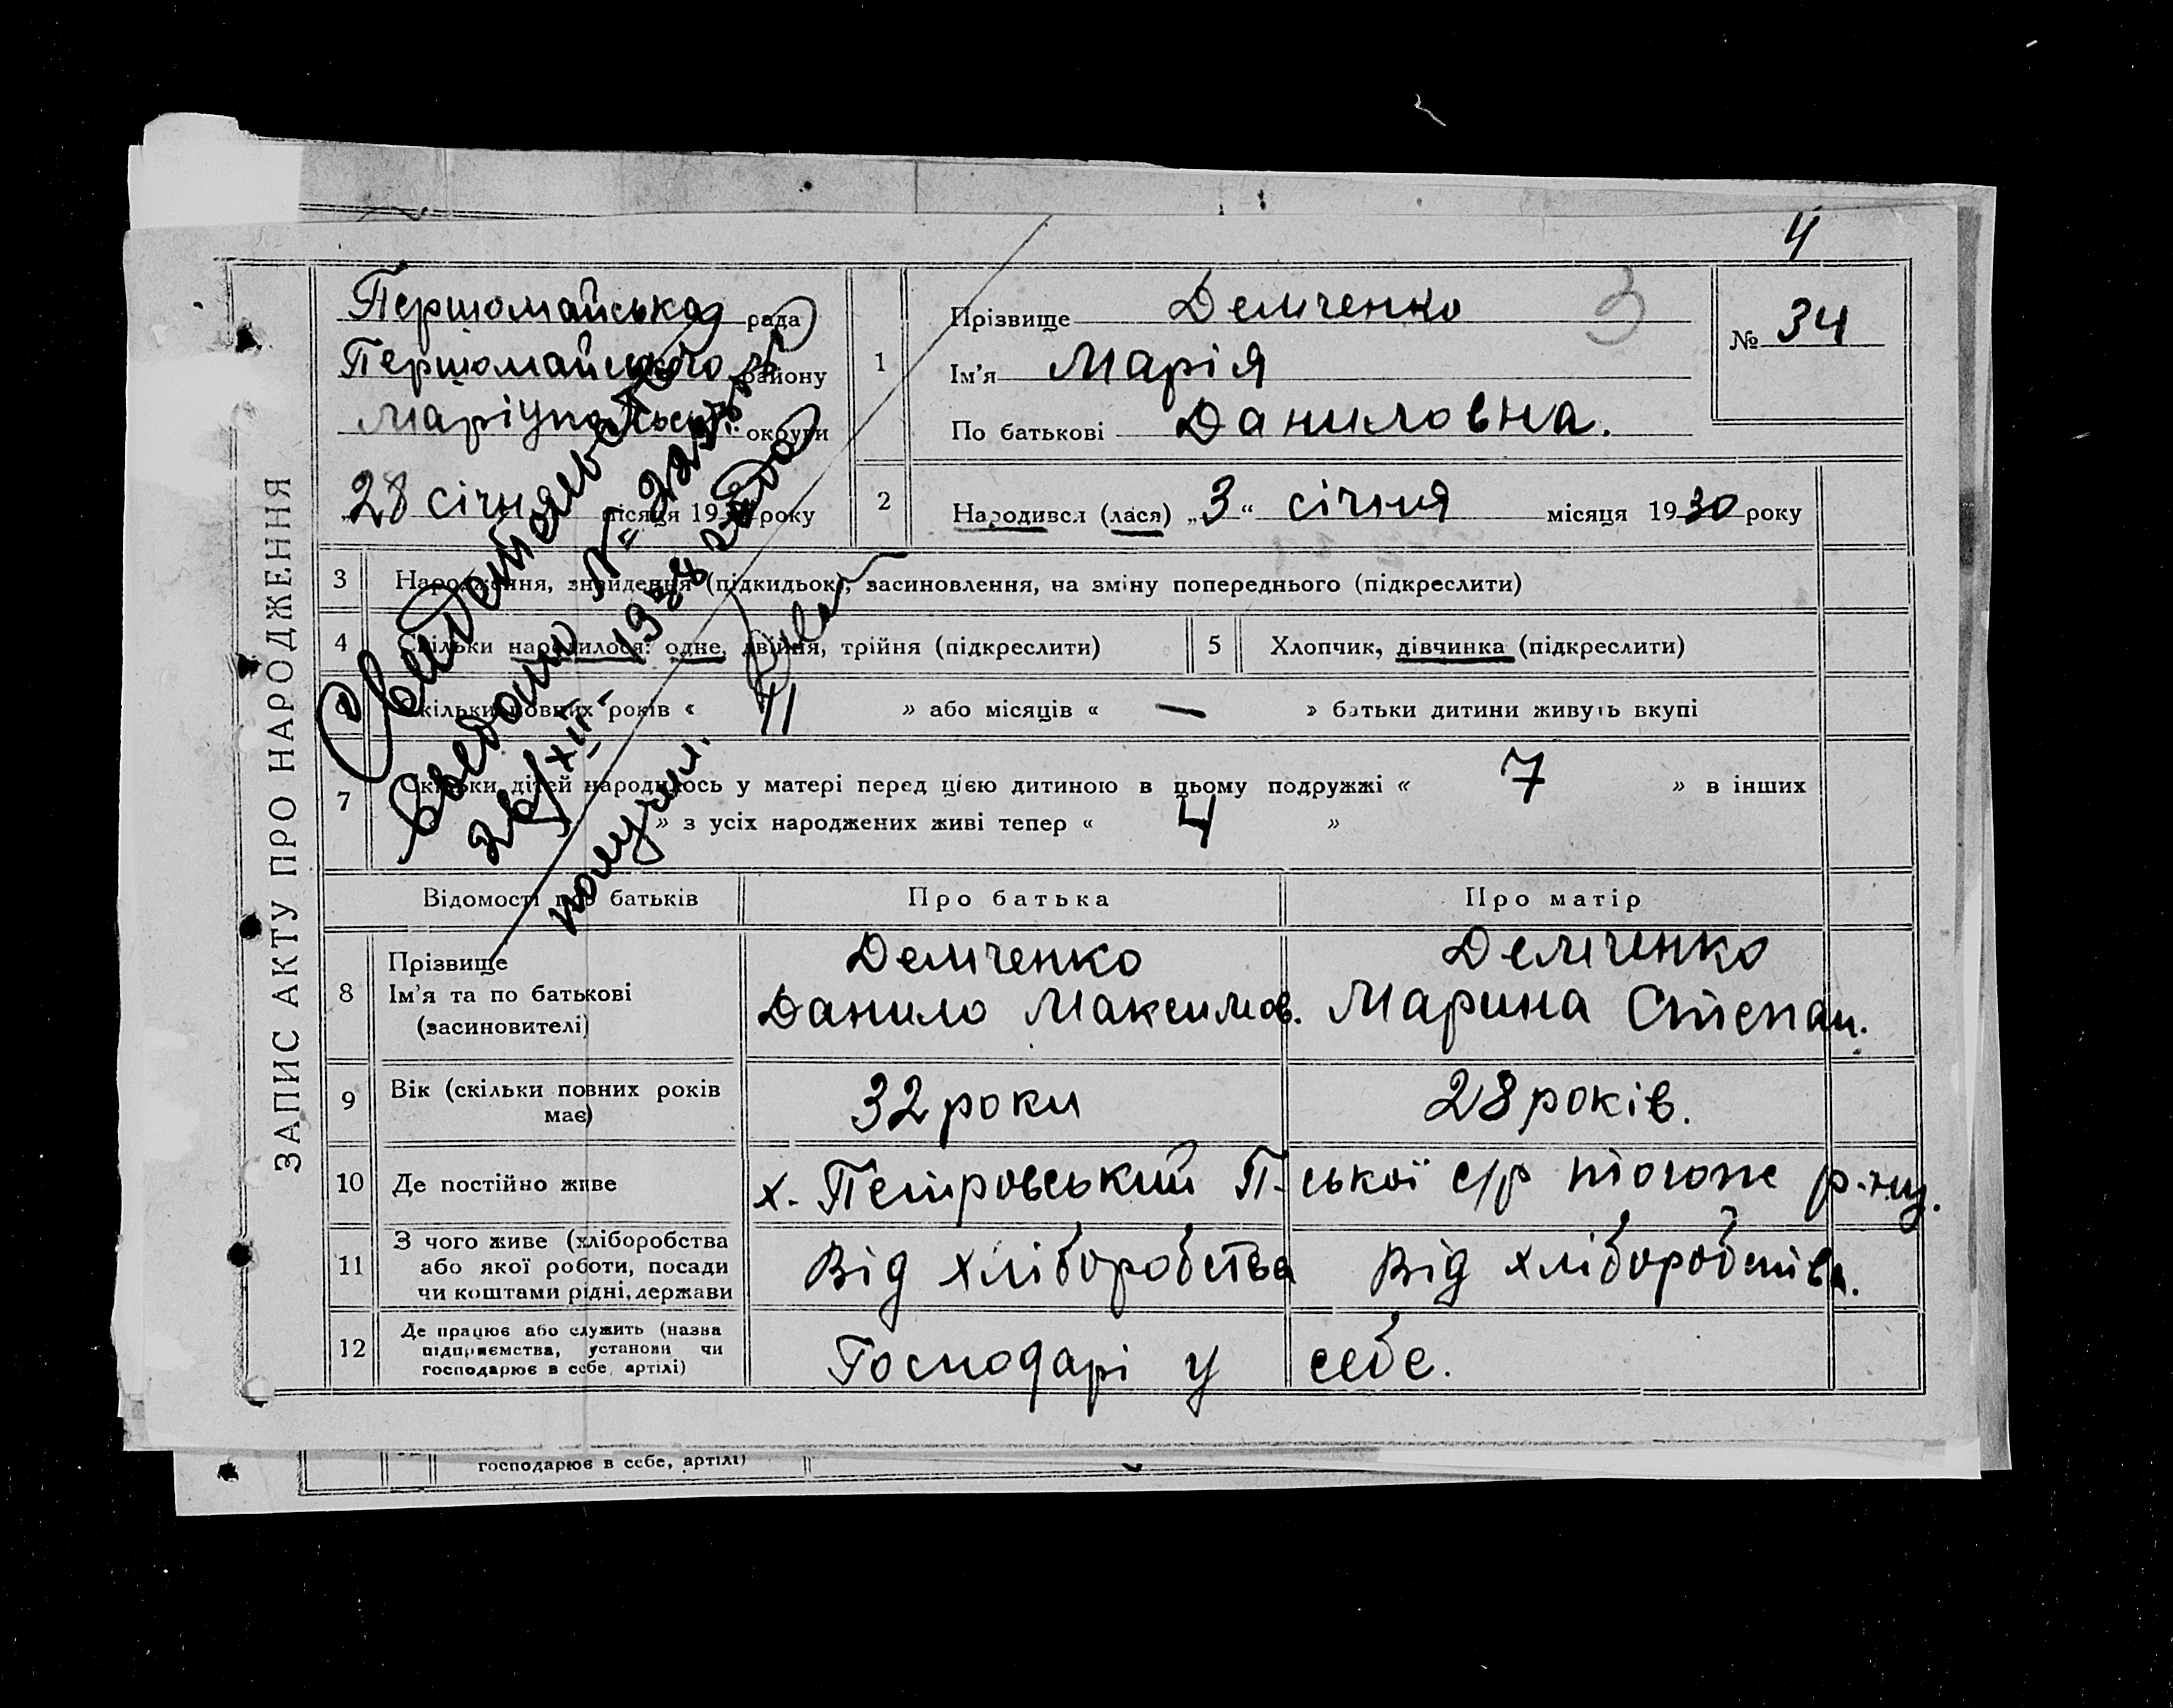 4
ЗАПИС АКТУ ПРО НАРОДЖЕННЯ
Першомайська рада
Першомайського району
Маріупольської округи
28 січня місяця 19 року
1
Прізвище Демченко
Ім'я Марія
По батькові Даниловна.
3
№ 34
2
Народився (лася) „3“ січня місяця 1930 року
3
Народження, знайдення (підкидьок), засиновлення, на зміну попереднього (підкреслити)
4
Скільки народилося: одне, двійня, трійня (підкреслити)
5
Хлопчик, дівчинка (підкреслити)
6
Скільки повних років « 11 » або місяців « — » батьки дитини живуть вкупі
7
Скільки дітей народилось у матері перед цією дитиною в цьому подружжі « 7 » в інших
» з усіх народжених живі тепер « 4 »
Відомості про батьків
Про батька
Про матір
8
Прізвище
Ім'я та по батькові
(засиновителі)
Демченко
Данило Максимов.
Демченко
Марина Степан.
9
Вік (скільки повних років
має)
32 роки
28 років.
10
Де постійно живе
х. Петровський П-ської с/р тогоже р-ну.
11
З чого живе (хліборобства
або якої роботи, посади
чи коштами рідні, держави
Від хліборобства
Від хліборобства.
12
Де працює або служить (назва
підприємства, установи чи
господарює в себе, артілі)
Господарі у себе.
Свидетельство
№
26/XII-
получил.
господарює в себе, артілі)